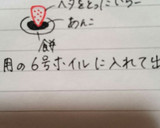 ヘタをとったいちご
あんこ
餅
用の6号ホイルに入れて出